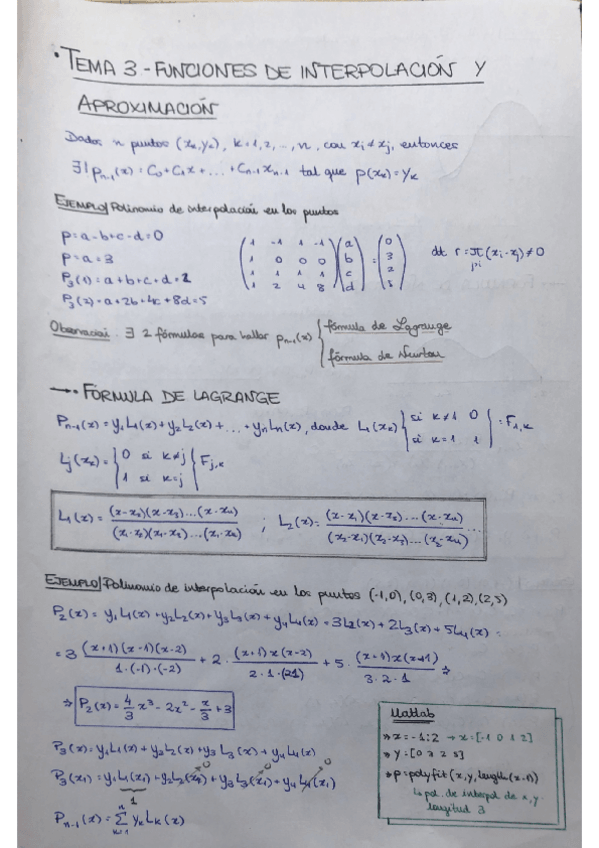 · TEMA 3.- FUNCIONES DE INTERPOLACIÓN Y
APROXIMACIÓN
Dados n puntos (xₖ,yₖ), k=1,2,...,n, con xᵢ≠xⱼ, entonces
∃! pₙ₋₁(x) = C₀+C₁x+...+Cₙ₋₁xₙ₋₁ tal que p(xₖ)=yₖ
EJEMPLO/ Polinomio de interpolación en los puntos
p=a-b+c-d=0
p=a=3
P₃(1)=a+b+c+d=2
P₃(2)=a+2b+4c+8d=5
(1 -1 1 -1) (a) (0)
(1 0 0 0) (b) = (3)
(1 1 1 1) (c) (2)
(1 2 4 8) (d) (5)
dt r = π (xᵢ-xⱼ) ≠ 0
j>i
Observación. ∃ 2 fórmulas para hallar pₙ₋₁(x) { fórmula de Lagrange
fórmula de Newton
→· FÓRMULA DE LAGRANGE
Pₙ₋₁(x) = y₁L₁(x)+y₂L₂(x)+...+yₙLₙ(x), donde L₁(xₖ) { si k≠1 0
si k=1 1 } = F₁,ₖ
Lⱼ(xₖ) = { 0 si k≠j
1 si k=j { Fⱼ,ₖ
L₁(x) = (x-x₂)(x-x₃)...(x-x₄) / (x₁-x₂)(x₁-x₃)...(x₁-x₄) ; L₂(x) = (x-x₁)(x-x₃)...(x-x₄) / (x₂-x₁)(x₂-x₃)...(x₂-x₄) ...
EJEMPLO/ Polinomio de interpolación en los puntos (-1,0), (0,3), (1,2), (2,5)
P₂(x) = y₁L₁(x)+y₂L₂(x)+y₃L₃(x)+y₄L₄(x) = 3L₂(x)+2L₃(x)+5L₄(x) =
= 3 (x+1)(x-1)(x-2) / 1·(-1)·(-2) + 2· (x+1)x(x-2) / 2·1·(21) + 5· (x+1)x(x+1) / 3·2·1 ⇒
⇒ P₂(x) = 4/3 x³ - 2x² - x/3 + 3
P₃(x) = y₁L₁(x)+y₂L₂(x)+y₃L₃(x)+y₄L₄(x)
P₃(x₁) = y₁L₁(x₁)+y₂L₂(x₁)+y₃L₃(x₁)+y₄L₄(x₁)
0 0 0
1
Pₙ₋₁(x) = Σ yₖLₖ(x)
n
k=1
Matlab
» x=-1:2 → x=[-1 0 1 2]
» y=[0 3 2 5]
» p=polyfit(x,y,length(x-1))
↳ pol. de interpol de x,y.
longitud 3